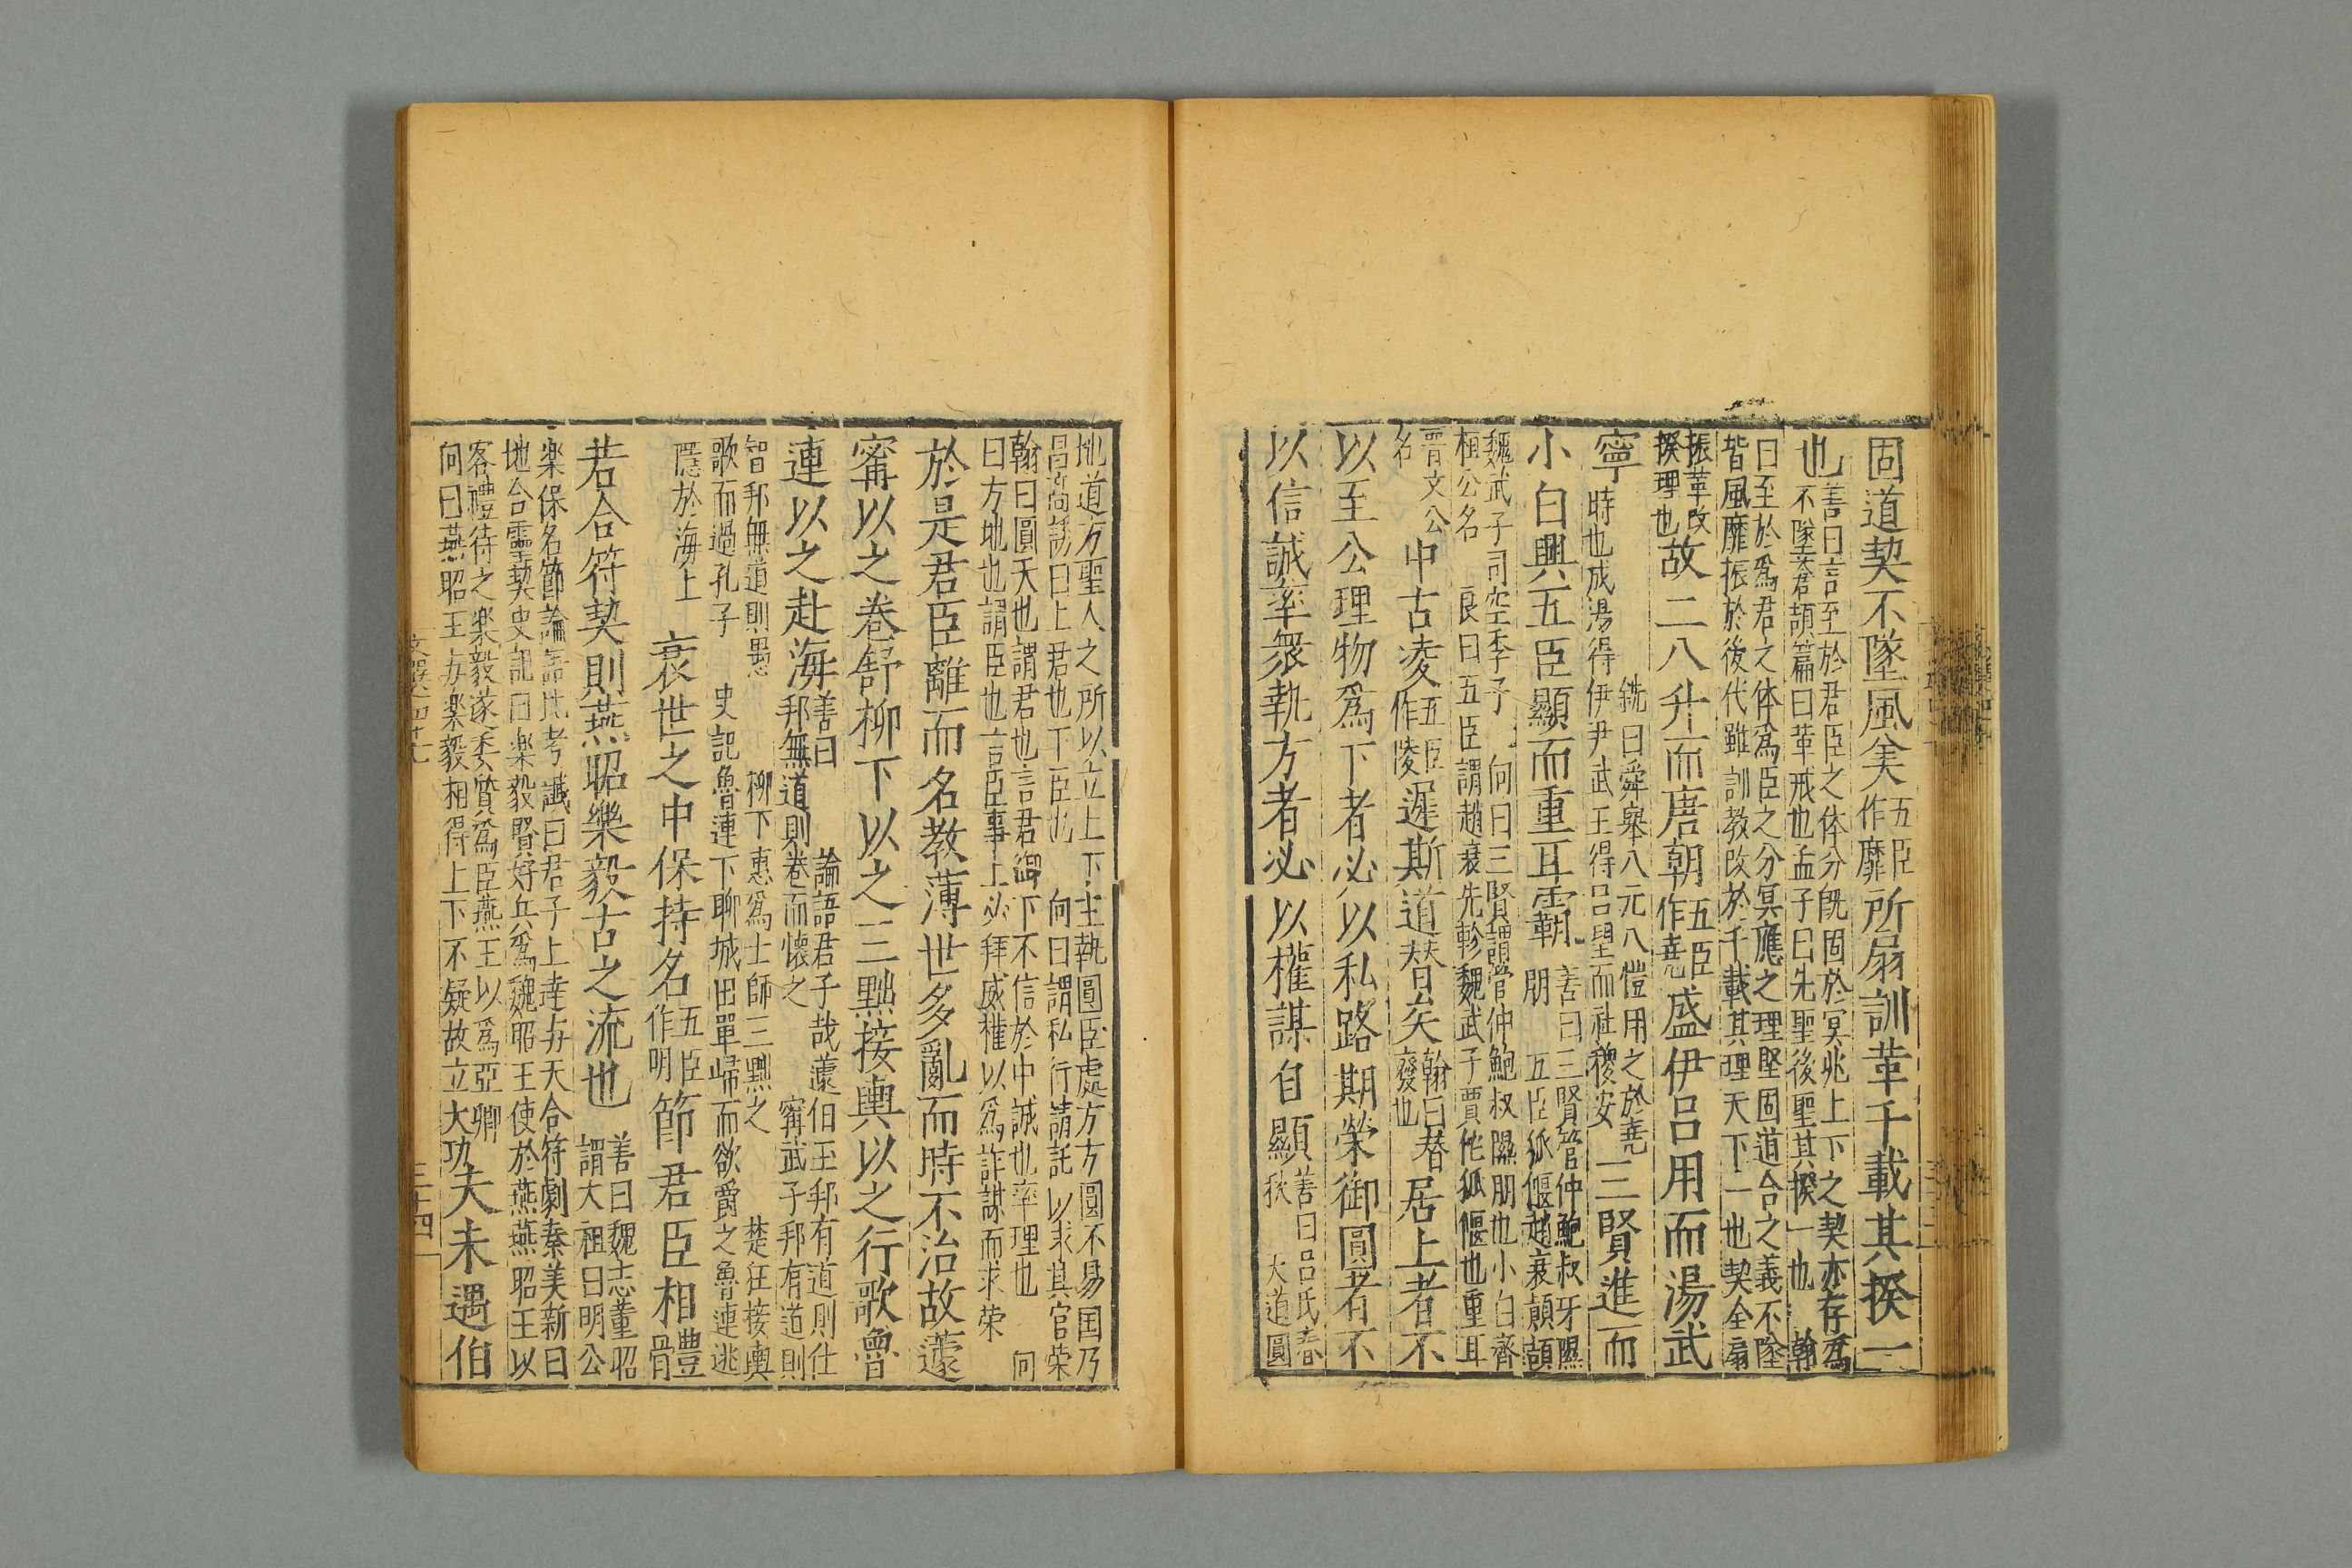 固道契不墜風美五臣作靡所扇訓革千載其揆一
也善曰言至於君臣之体分既固於冥兆上下之契亦存為
不墜蒼頡篇曰革戒也孟子曰先聖後聖其揆一也 翰
曰至於為君之体為臣之分冥應之理堅固道合之義不墜
皆風靡振於後代雖訓教改於千載其理天下一也契全扇
振革改
揆理也故二八升而唐朝五臣作堯盛伊呂用而湯武
寧銑曰舜舉八元八愷用之於堯
時也成湯得伊尹武王得呂望而社稷安三賢進而
小白興五臣顯而重耳霸善曰三賢管仲鮑叔牙隰
朋 五臣狐偃趙衰顛頡
魏武子司空季子 向曰三賢謂管仲鮑叔隰朋也小白齊
桓公名 良曰五臣謂趙衰先軫魏武子賈佗狐偃也重耳
晋文公
名中古凌五臣作陵遲斯道替矣翰曰替
廢也居上者不
以至公理物為下者必以私路期榮御圓者不
以信誠率衆執方者必以權謀自顯善曰呂氏春
秋 天道圓
地道方聖人之所以立上下主執圓臣處方方圓不易国乃
昌高誘曰上君也下臣也 向曰謂私行請託以求其官榮
翰曰圓天也謂君也言君御下不信於中誠也率理也 向
曰方地也謂臣也言臣事上必拜威權以為詐謀而求榮
於是君臣離而名教薄世多亂而時不治故蘧
甯以之卷舒柳下以之三黜接輿以之行歌魯
連以之赴海善曰 論語君子哉蘧伯玉邦有道則仕
邦無道則卷而懷之 甯武子邦有道則
智邦無道則愚 柳下惠為士師三黜之 楚狂接輿
歌而過孔子 史記魯連下聊城田單歸而欲爵之魯連逃
隱於海上衰世之中保持名五臣作明節君臣相體
若合符契則燕昭樂毅古之流也善曰魏志董昭
謂大祖曰明公
楽保名節論語比考讖曰君子上達与天合符劇秦美新曰
地合靈契史記曰楽毅賢好兵為魏昭王使於燕燕昭王以
客禮待之楽毅遂委質為臣燕王以為亞卿
向曰燕昭王与楽毅相得上下不疑故立大功夫未遇伯
文選四十七
三十四